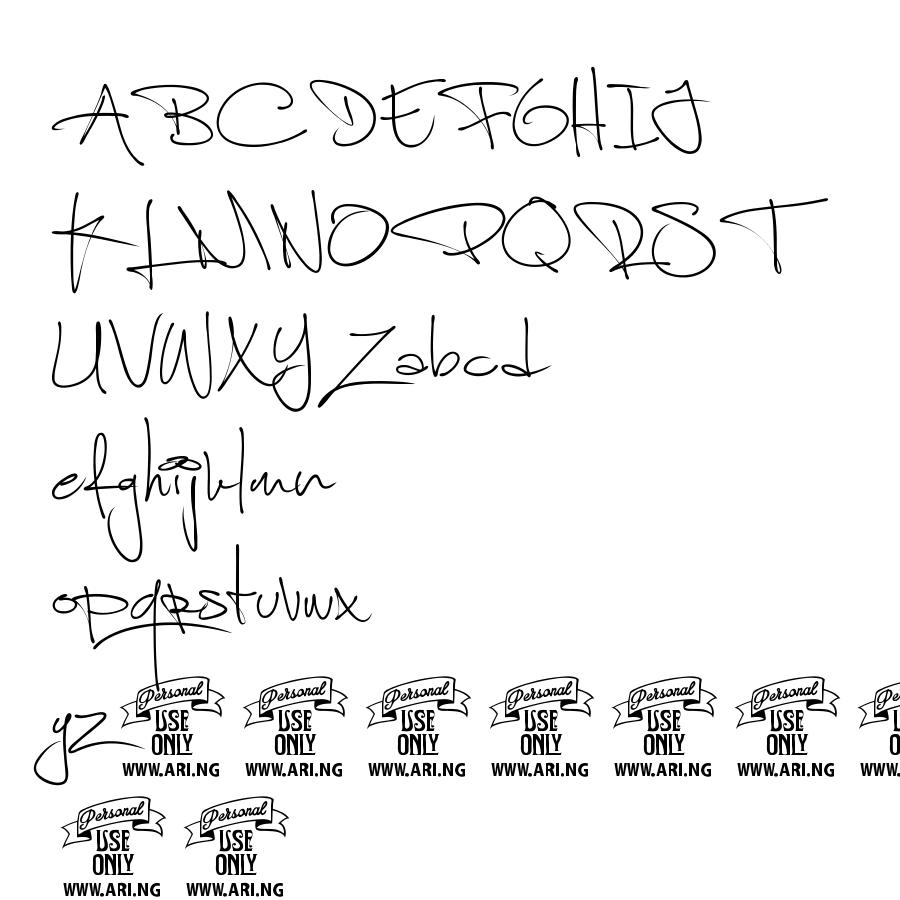 ABCDEFGHIJ
KLMNOPQRST
UVWXYZabcd
efghijklmn
opqrstuvwx
yz Personal Personal Personal Personal Personal Personal Pe
USE USE USE USE USE USE
ONLY ONLY ONLY ONLY ONLY ONLY
WWW.ARI.NG WWW.ARI.NG WWW.ARI.NG WWW.ARI.NG WWW.ARI.NG WWW.ARI.NG WWW.
Personal Personal
USE USE
ONLY ONLY
WWW.ARI.NG WWW.ARI.NG